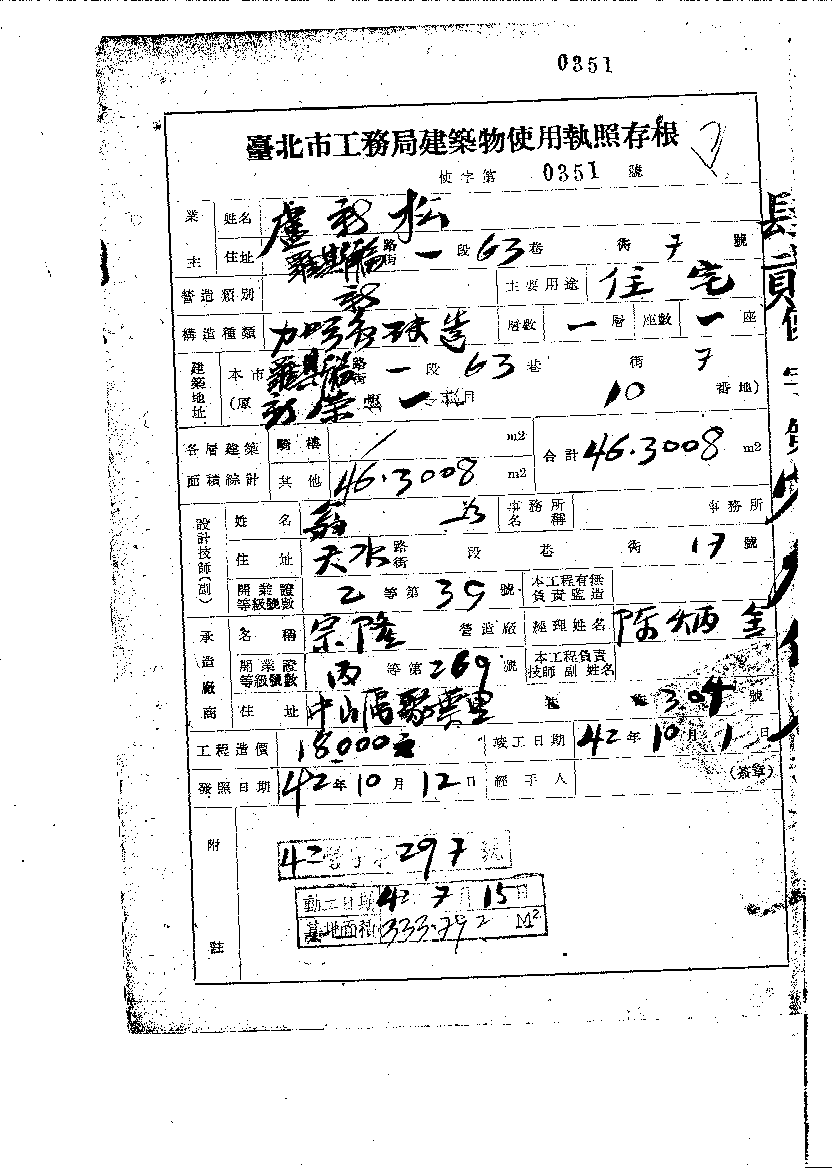 0351
臺北市工務局建築物使用執照存根
使字第 0351 號
業主 姓名 盧新松
住址 羅斯福 路街 一 段 63 巷 街 7 號
營造類別 新 主要用途 住宅
構造種類 造 層數 一 層 座數 一 座
建築地址 本市 羅斯福 路街 一 段 63 巷 街 7
(原 新榮 一 10 番地)
各層建築面積綜計 騎樓 / m2 合計 46.3008 m2
其他 46.3008 m2
設計技師(副) 姓名 事務所名稱 事務所
住址 天水 路街 段 巷 街 17 號
開業證等級號數 乙 等第 39 號 本工程有無負責監造
承造廠商 名稱 宗隆 營造廠 經理姓名 陳炳金
開業證等級號數 丙 等第 269 號 本工程負責技師副姓名
住址 中山區聚葉里 304 號
工程造價 18000元 竣工日期 42年10月1日
發照日期 42年10月12日 經手人 (簽章)
附註
42 營字 297 號
動工日期 42 7月15日
基地面積 333.792 M²